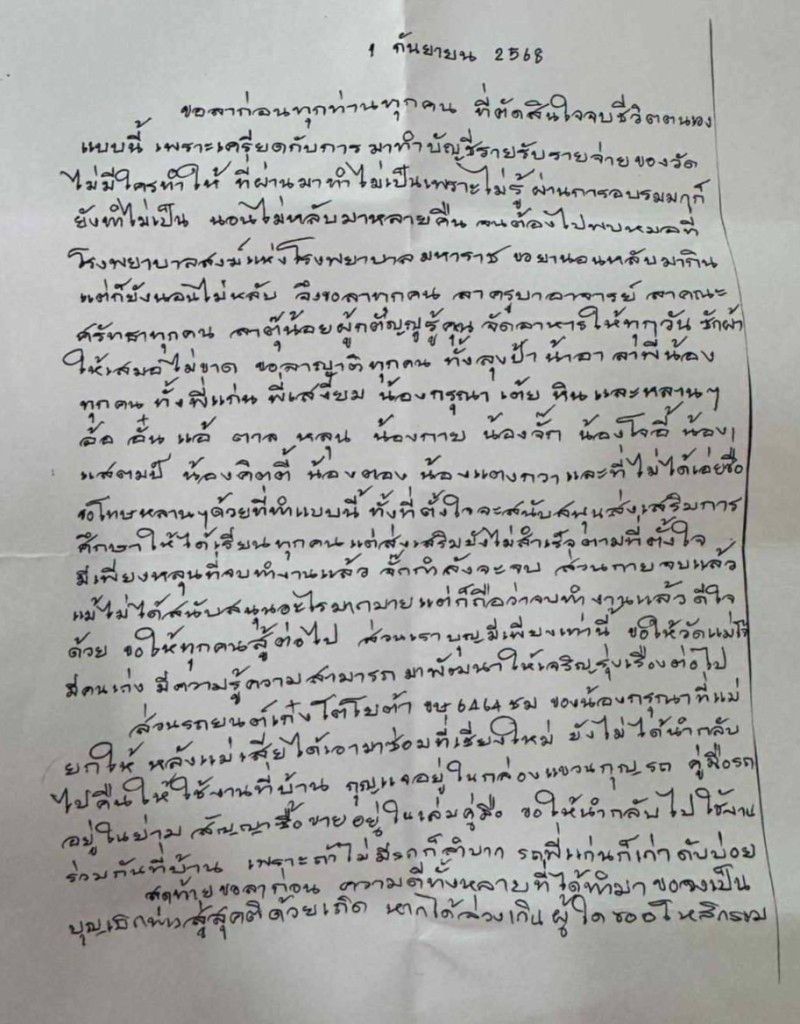 1 กันยายน 2568
ขอลาก่อนทุกท่านทุกคน ที่ตัดสินใจจบชีวิตตนเอง
แบบนี้ เพราะเครียดกับการมาทำบัญชีรายรับรายจ่ายของวัด
ไม่มีใครทำให้ ที่ผ่านมาทำไม่เป็นเพราะไม่รู้ ผ่านการอบรมมาก็
ยังทำไม่เป็น นอนไม่หลับมาหลายคืน จนต้องไปพบหมอที่
โรงพยาบาลสงฆ์แห่งโรงพยาบาลมหาราช ขอยานอนหลับมากิน
แต่ก็ยังนอนไม่หลับ จึงขอลาทุกคน ลาครูบาอาจารย์ ลาคณะ
ศรัทธาทุกคน ลาตุ๊น้อยผู้กตัญญูรู้คุณ จัดอาหารให้ทุกวัน ซักผ้า
ให้เสมอไม่ขาด ขอลาญาติทุกคน ทั้งลุงป้าน้าอา ลาพี่น้อง
ทุกคน ทั้งพี่แก่น พี่เสงี่ยม น้องกรุณา เต้ย หิน และหลานๆ
อ้อ อั๋น แอ้ ตาล หลุน น้องกาย น้องจั๊ก น้องโจอี้ น้อง
แสตมป์ น้องคิตตี้ น้องตอง น้องแตงกวา และที่ไม่ได้เอ่ยชื่อ
ขอโทษหลานๆด้วยที่ทำแบบนี้ ทั้งที่ตั้งใจจะสนับสนุนส่งเสริมการ
ศึกษาให้ได้เรียนทุกคน แต่ส่งเสริมยังไม่สำเร็จตามที่ตั้งใจ
มีเพียงหลุนที่จบทำงานแล้ว จั๊กกำลังจะจบ ส่วนกายจบแล้ว
แม้ไม่ได้สนับสนุนอะไรมากมายแต่ก็ถือว่าจบทำงานแล้ว ดีใจ
ด้วย ขอให้ทุกคนสู้ต่อไป ส่วนเราบุญมีเพียงเท่านี้ ขอให้วัดแม่โจ้
มีคนเก่ง มีความรู้ความสามารถ มาพัฒนาให้เจริญรุ่งเรืองต่อไป
ส่วนรถยนต์เก๋งโตโยต้า ขษ 6464 ชม ของน้องกรุณาที่แม่
ยกให้ หลังแม่เสียได้เอามาซ่อมที่เชียงใหม่ ยังไม่ได้นำกลับ
ไปคืนให้ใช้งานที่บ้าน กุญแจอยู่ในกล่องแขวนกุญรถ คู่มือรถ
อยู่ในย่าม สัญญาซื้อขายอยู่ในเล่มคู่มือ ขอให้นำกลับไปใช้งาน
ร่วมกันที่บ้าน เพราะถ้าไม่มีรถก็ลำบาก รถพี่แก่นก็เก่าดับบ่อย
สุดท้ายขอลาก่อน ความดีทั้งหลายที่ได้ทำมา ขอจงเป็น
บุญ สู่สุคติด้วยเถิด หากได้ล่วงเกินผู้ใด ขออโหสิกรรม